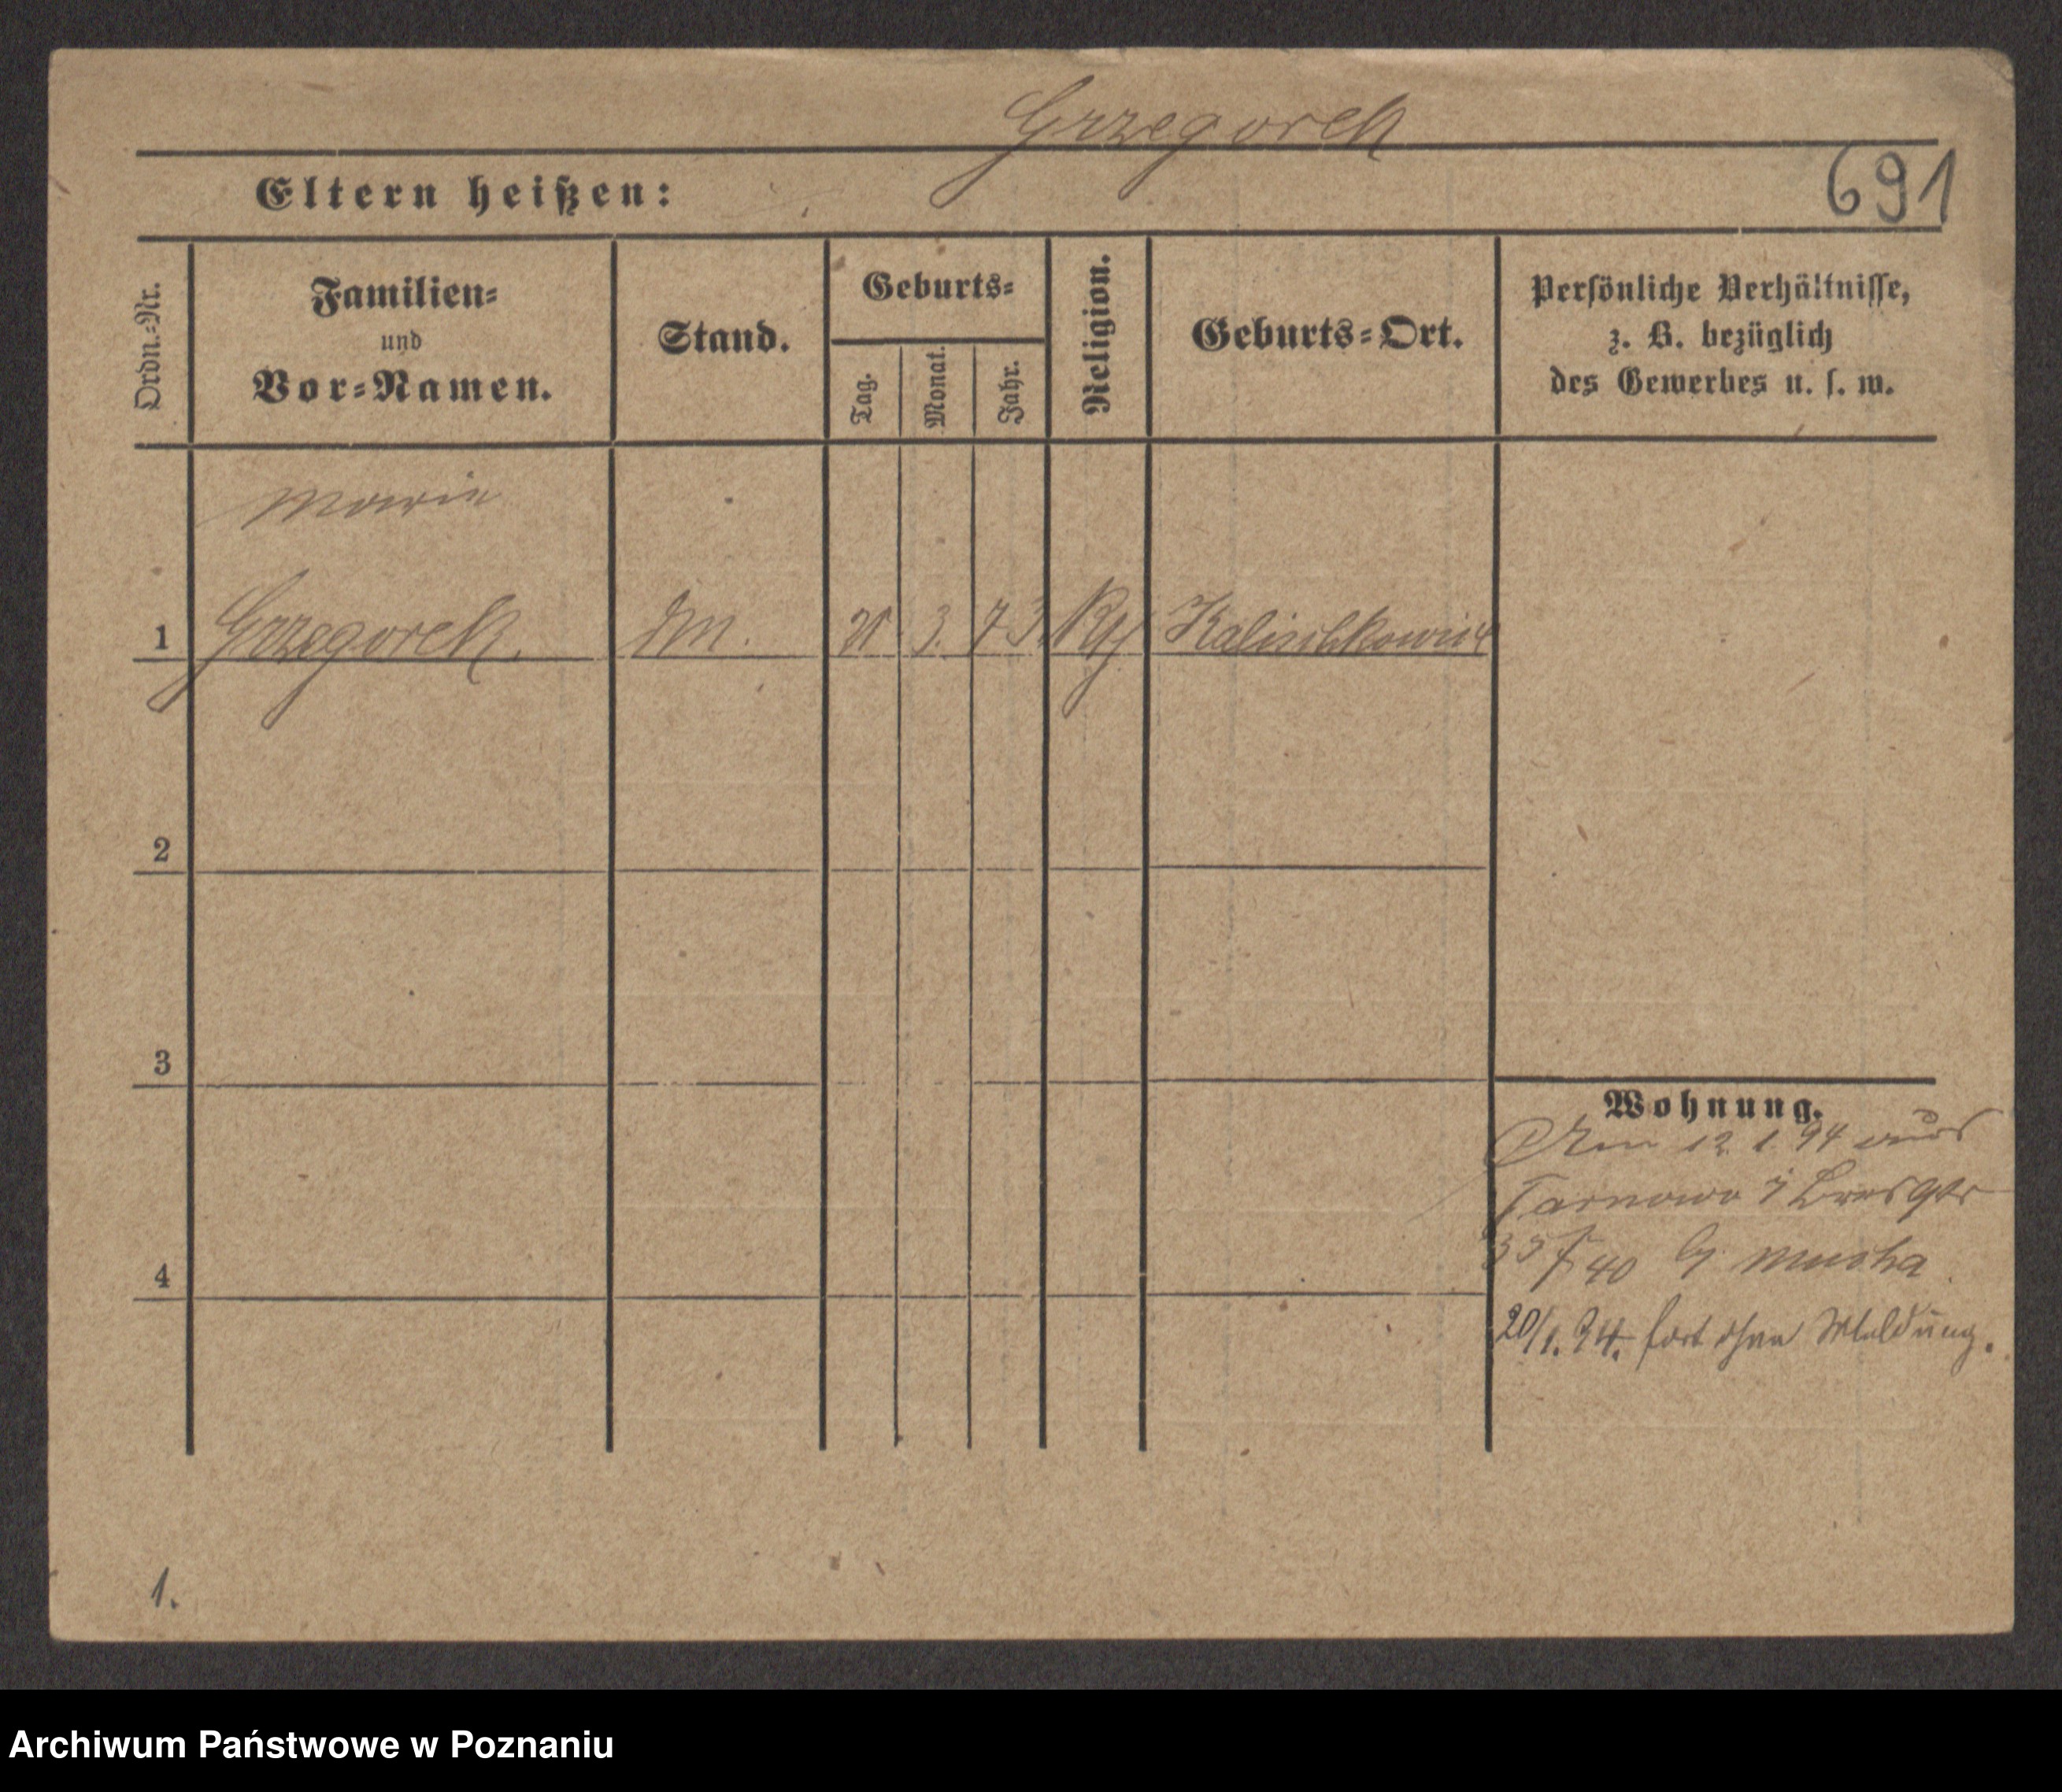 Grzegorek
Eltern heißen:
691
Ordn.-Nr.
Familien-
und
Vor-Namen.
Stand.
Geburts-
Tag.
Monat.
Jahr.
Religion.
Geburts-Ort.
Persönliche Verhältnisse,
z. B. bezüglich
des Gewerbes u. s. w.
Marie
1 Grzegorek. 3. 73.
2
3
Wohnung.
12. 1. 94 aus
Tarnowo
40 Mucha
4
20/1. 94. fort ohne Meldung.
1.
Archiwum Państwowe w Poznaniu